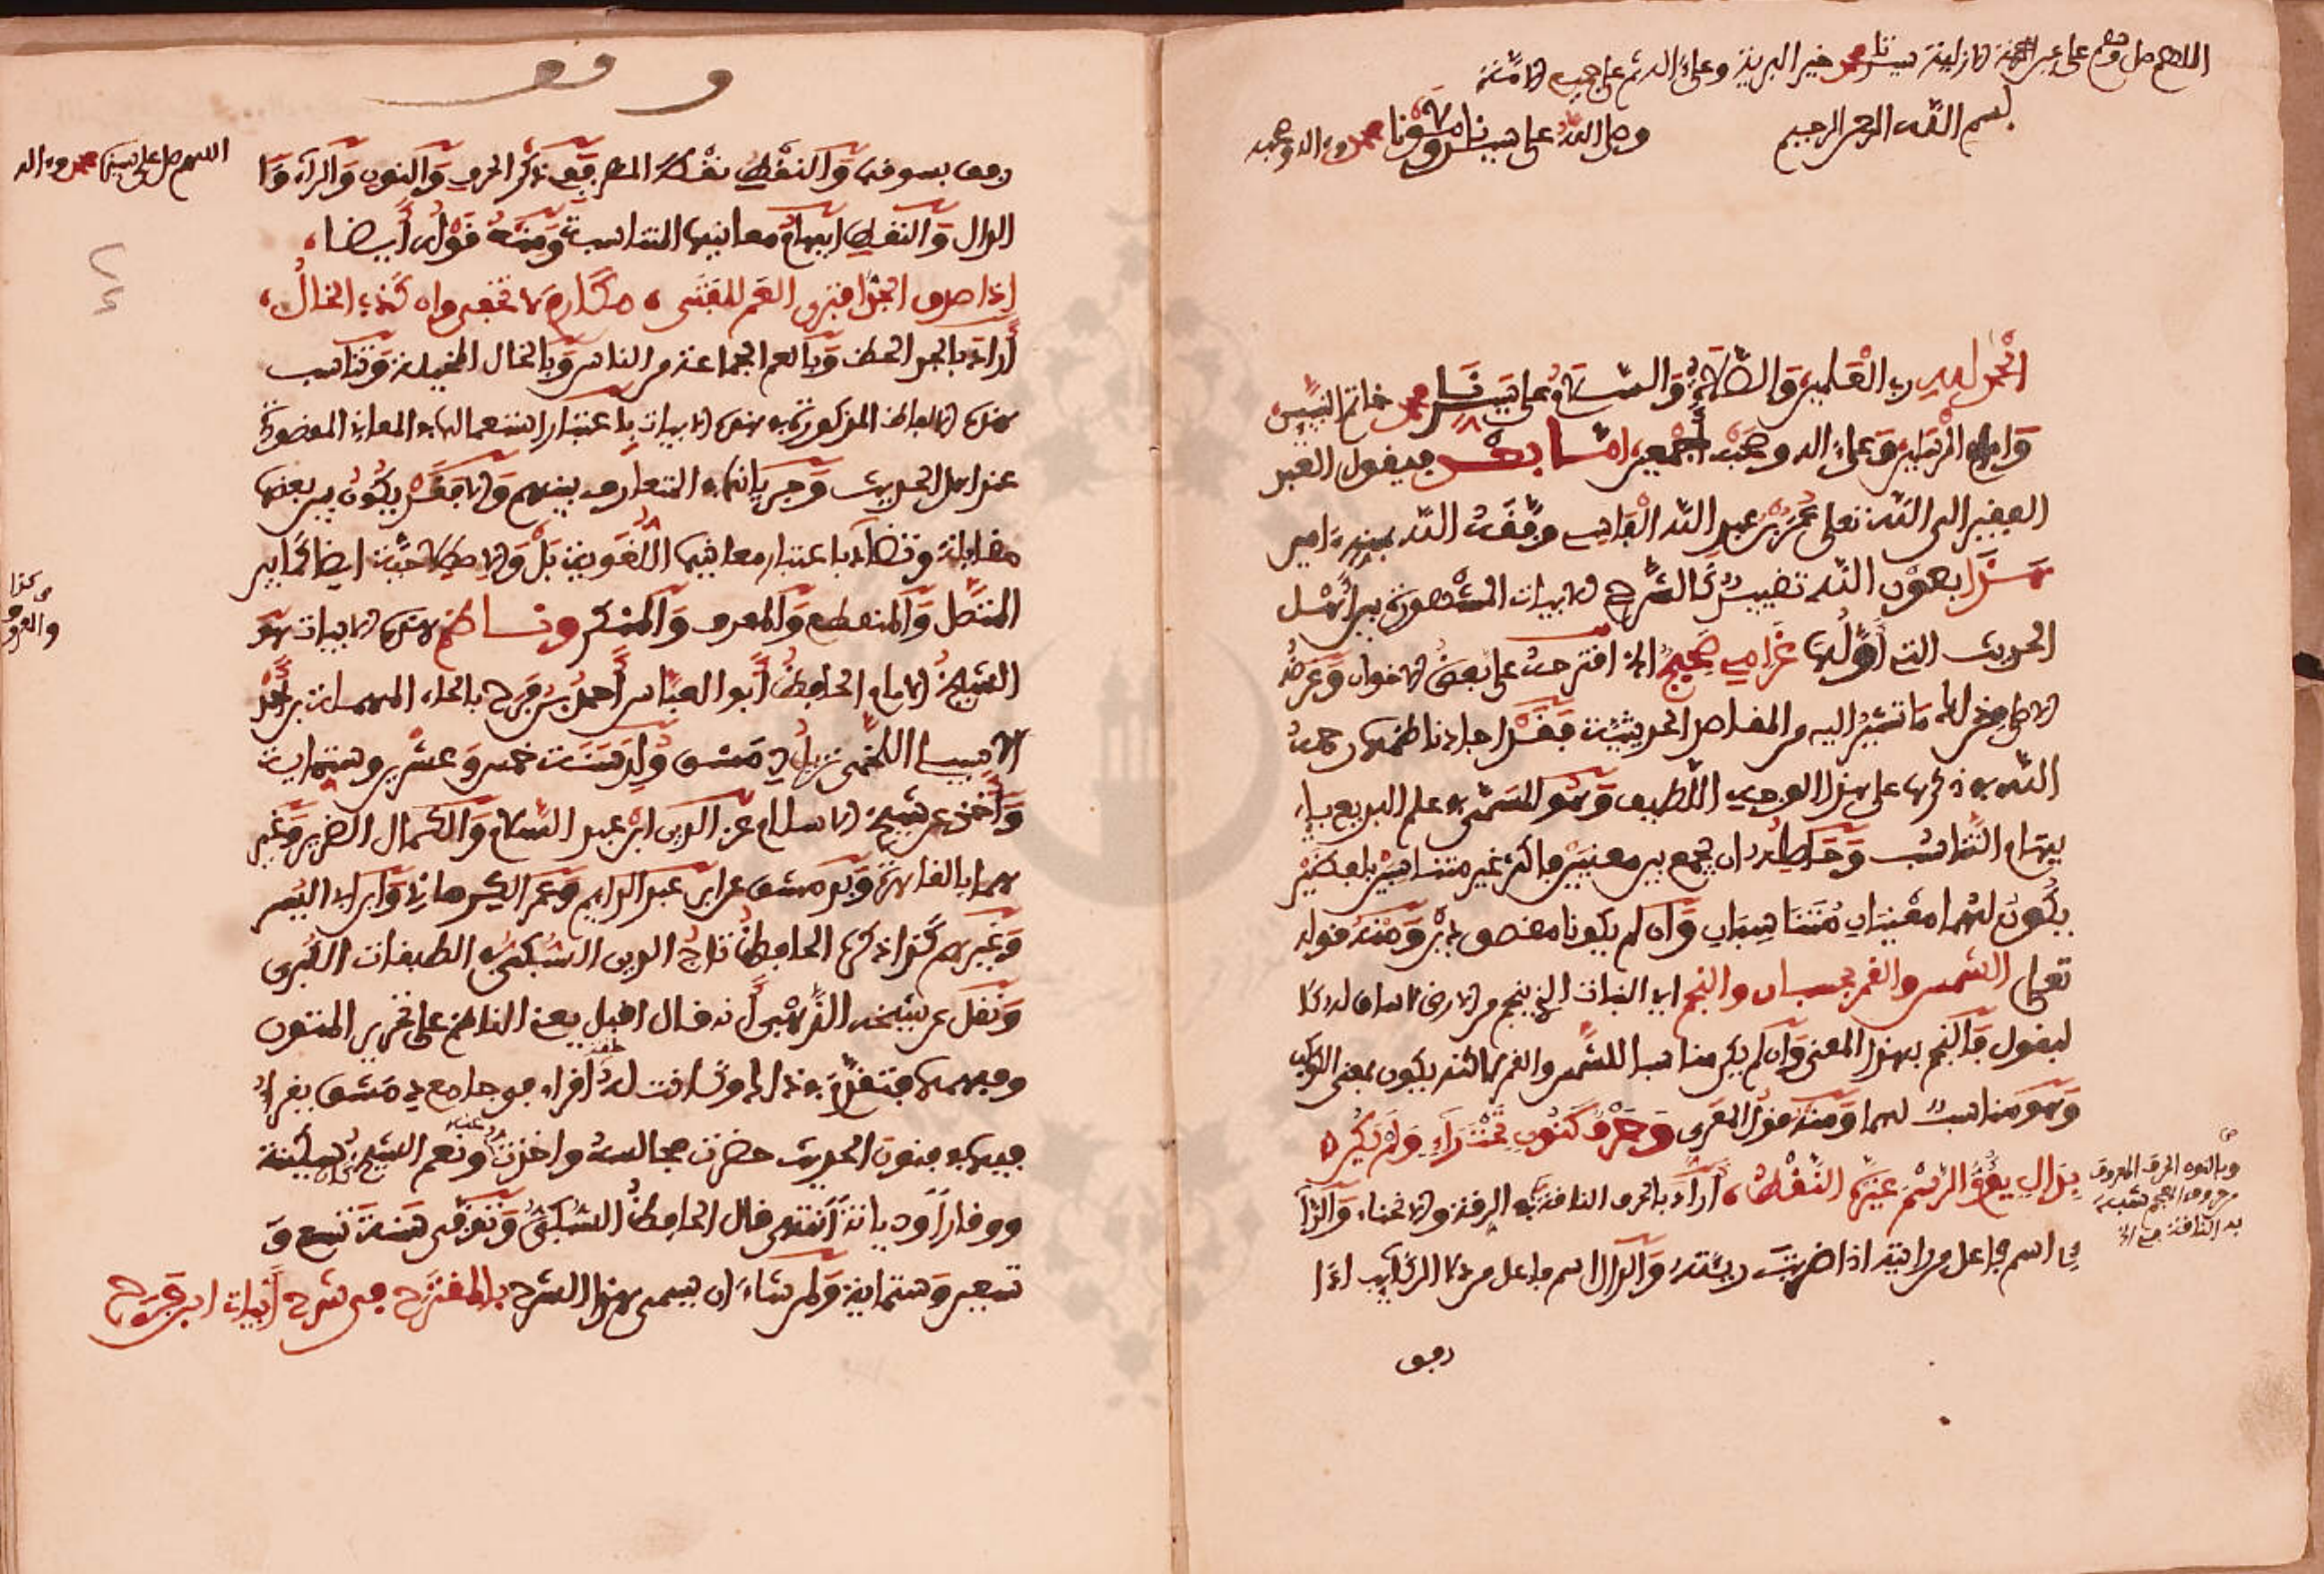 اللهم صل وسلم على عين الرحمة الازلية سيدنا محمد خير البرية وعلى اله ثم على جميع الامة
بسم الله الرحمن الرحيم وصلى الله على سيدنا ومولانا محمد وءاله وصحبه
الحمد لله رب العلمين والصلاة والسلام على سيدنا محمد خاتم النبيين
وامام المرسلين وعلى اله وصحبه اجمعين اما بعد فيقول العبد
الفقير الى الله تعلى محمد بن عبد الله الفاسي وفقه الله بمنه ءامين
هذا بعون الله تقييد كالشرح للابيات المشهورة بين اهل
الحديث التي اولها غرامي صحيح الخ اقترحه على بعض الاخوان وغرضه
الاطلاع على ما تشير اليه من المقاصد الحديثية فقد اجاد ناظمها رحمه
الله في ذكرها على هذا الوجه اللطيف وهو المسمى في علم البديع با
يهام التناسب وحاصله ان يجمع بين معنيين فاكثر غير متناسبين بلفظين
يكون لهما معنيان متناسبان وان لم يكونا مقصودين ومنه قوله
تعلى الشمس والقمر بحسبان والنجم اي النبات الذي ينجم من الارض لا ساق له كا
لبقول فالنجم بهذا المعنى وان لم يكن مناسبا للشمس والقمر لاكنه يكون بمعنى الكوكب
وهو مناسب لهما ومنه قول المعري وحرف كنون تحت راء ولم يكن
بدال يؤم الرسم غيره النقط، اراد بالحرف الناقة في الرقة والانحناء والرا
ء اسم فاعل من رايته اذا ضربت ريته والدال اسم فاعل من دلا الركايب اذا
وبالنون الحرف المعروف
من حروف المعجم شبه
به الناقة
رفق
وقف
رفق بسوقها والنقط نقط المطر ففي ذكر الحرف والنون والراء وا
الدال والنقط ايهام معانيها المتناسبة ومنه قوله أيضا،
اذا صدق الجد افترى العم للفتى، مكارم لا تخفى وان كذب الخال،
أراد بالجد الحظ وبالعم الجماعة من الناس وبالخال المخيلة وتناسب
هذه الالفاظ المذكورة في هذه الابيات باعتبار استعمالها في المعاني المقصودة
عند اهل الحديث وجريانها في التعارف بينهم والا فقد يكون بين بعضها
مقابلة وتضاد باعتبار معانيها اللغوية بل والاصطلاحية ايضا كما بين
المتصل والمنقطع والمعروف والمنكر وناظم هذه الابيات هو
الشيخ الامام الحافظ أبو العباس أحمد بن فرح بالحاء المهملة بن أحمد
الاشبيلي اللخمي نزيل دمشق ولد سنة خمس وعشرين وستماية
وأخذ عن شيخ الاسلام عز الدين ابن عبد السلام والكمال الضرير وغير
هما بالقاهرة وبدمشق عن ابن عبد الدايم وعمر الكرماني وابن ابي اليسر
وغيرهم كذا ذكره الحافظ تاج الدين السبكي في الطبقات الكبرى
ونقل عن شيخه الذهبي أنه قال اقبل يعني الناظم على تحرير المتون
وفهمها فتقدم في ذالك وكانت له حلقة اقراء في جامع دمشق يقرأ
فيها في فنون الحديث حضرت مجالسه واخذت عنه ونعم الشيخ كان سكينة
ووقارا وديانة انتهى قال الحافظ السبكي وتوفي سنة تسع و
تسعين وستماية ولمن شاء ان يسمي هذا الشرح بالمقترح في شرح أبيات ابن فرح
اللهم صل على سيدنا محمد وءاله